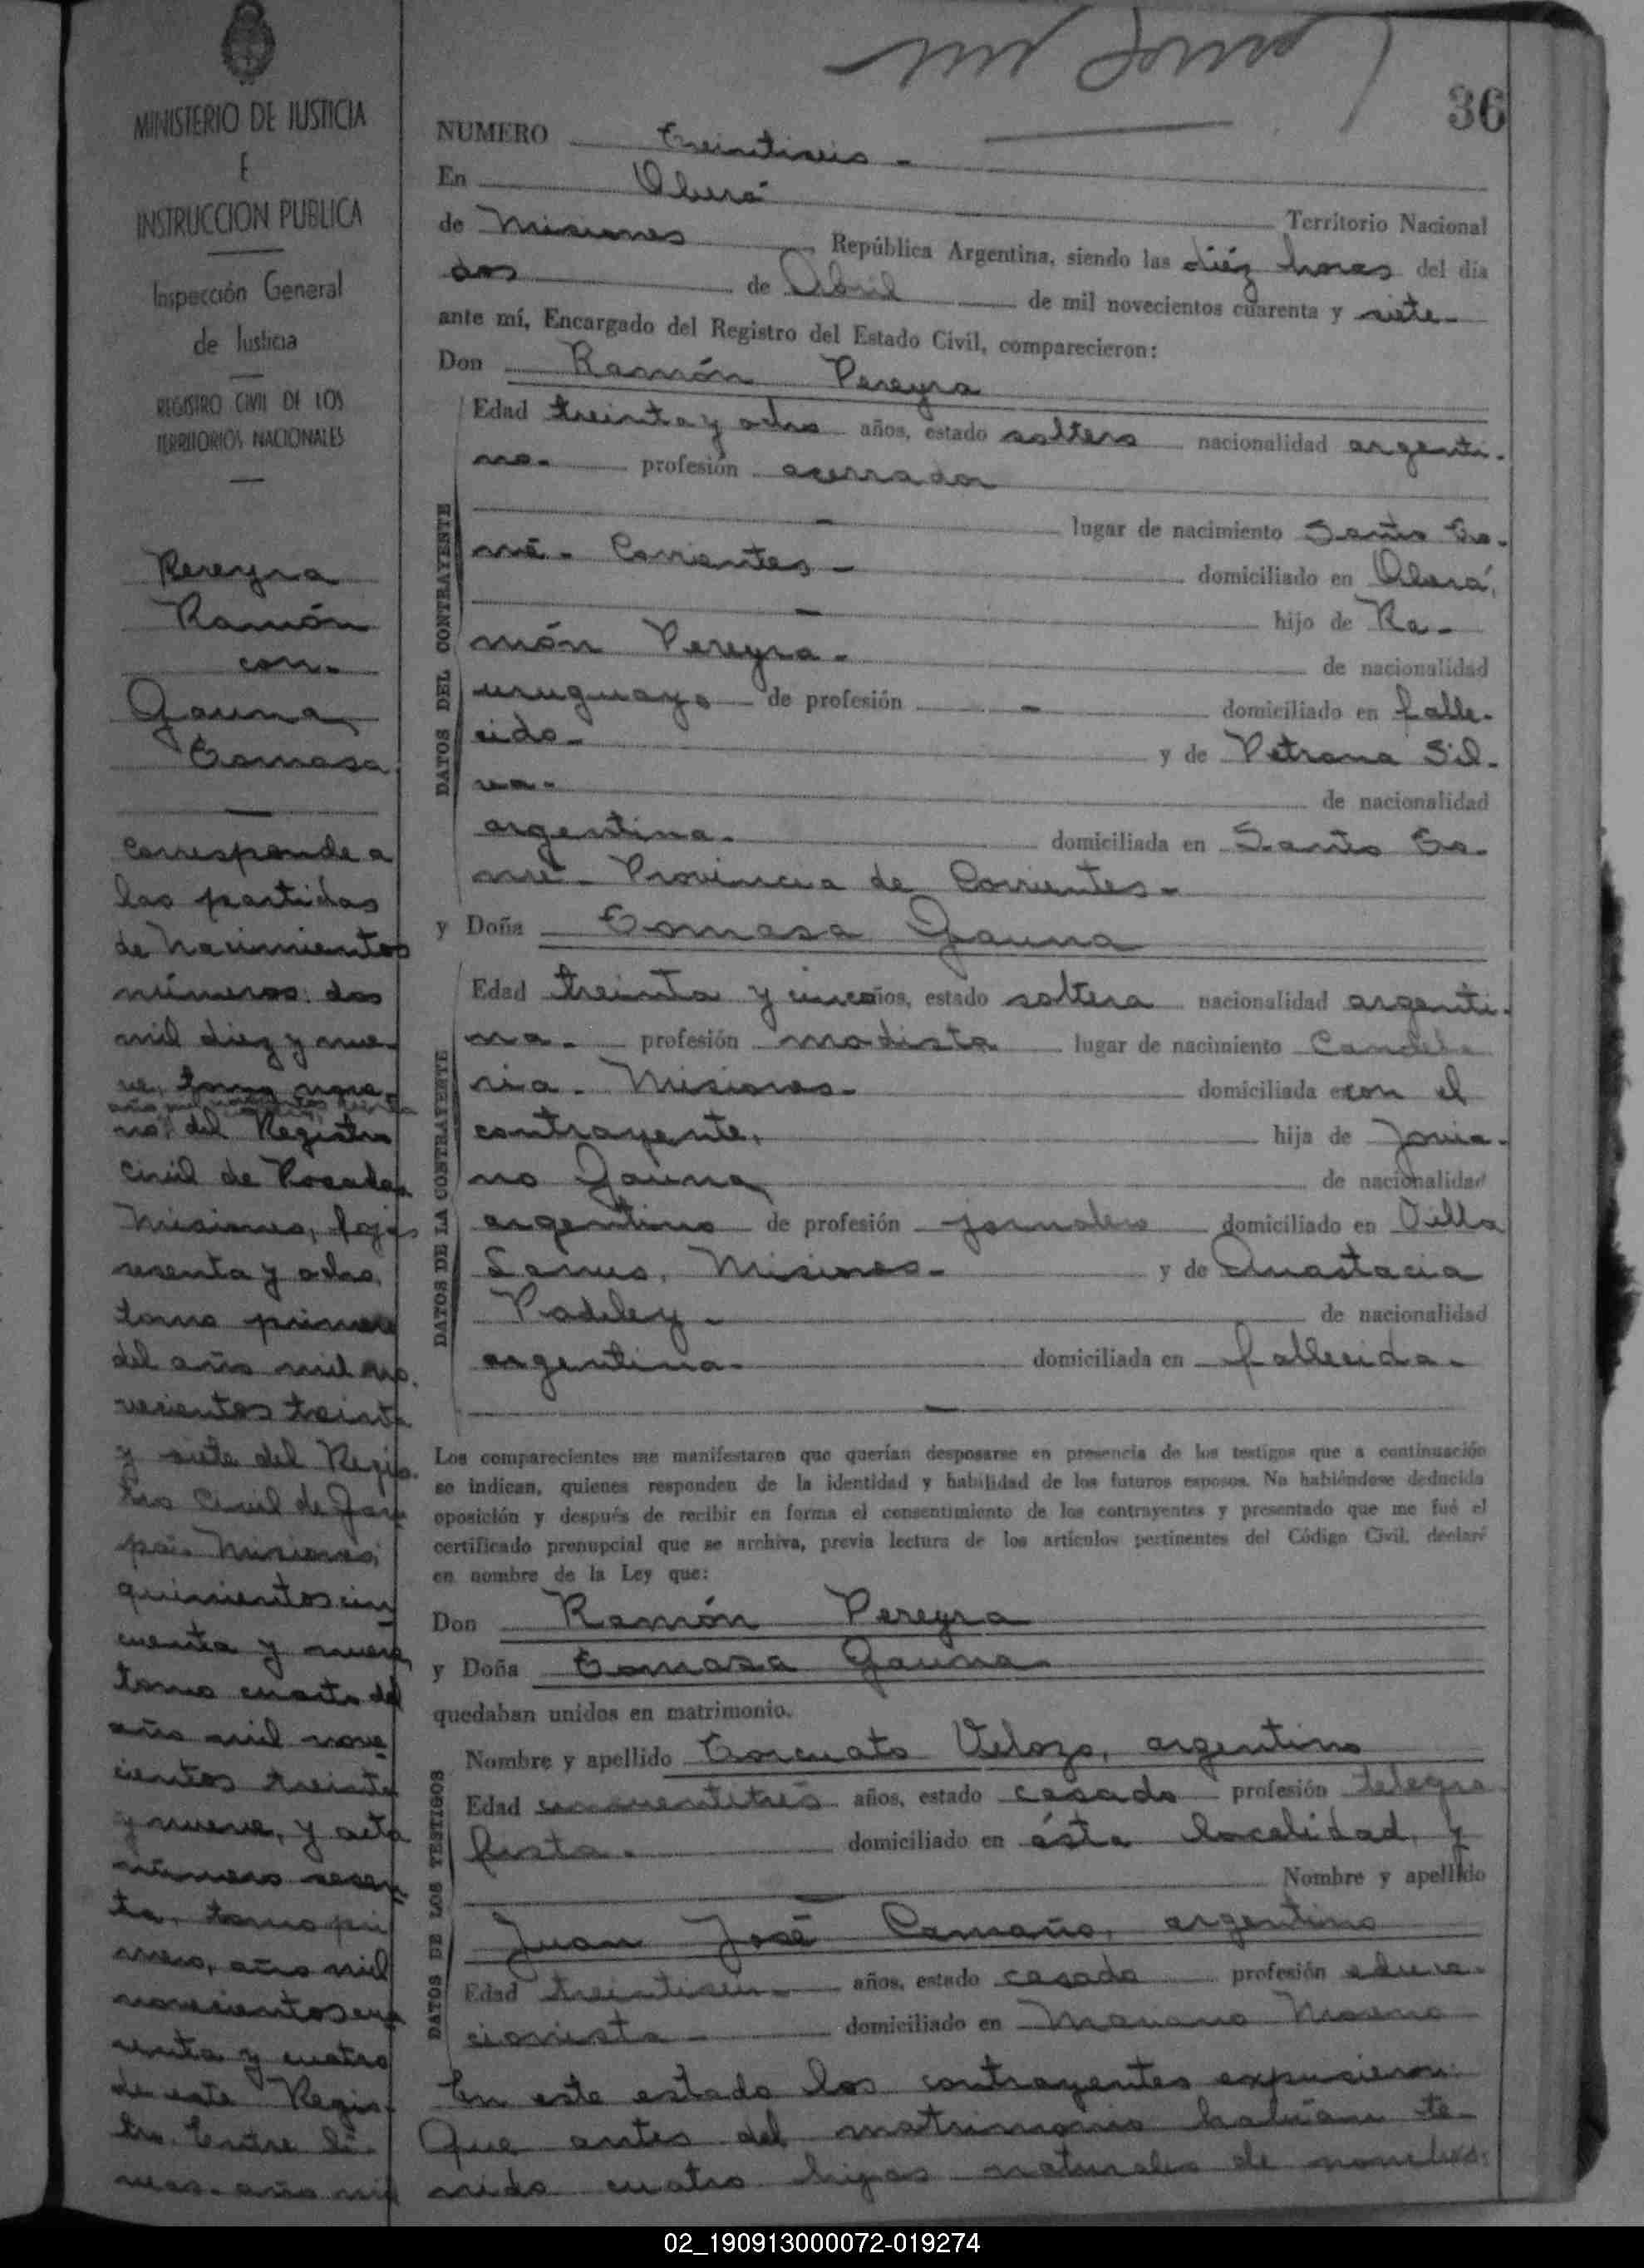 36
MINISTERIO DE JUSTICIA
E
INSTRUCCION PUBLICA
Inspección General
de Justicia
REGISTRO CIVIL DE LOS
TERRITORIOS NACIONALES
Pereyra
Ramón
con-
Gauna
Tomasa
Corresponde a
las partidas
de Nacimientos
números: dos
mil diez y nue-
ve, tomo
del Registro
Civil de Posadas
Misiones, fojas
sesenta y ocho,
tomo primero
del año mil no-
vecientos treinta
y siete del Regis-
tro Civil de
Misiones,
quinientos cin
cuenta y nueve,
tomo cuarto del
año mil nove
cientos treinta
y nueve, y acta
número sesen
ta, tomo pri
mero, año mil
novecientos cua
renta y cuatro
de este Regis-
tro. Entre lí-
neas- año mil
NUMERO Treintiseis -
En Oberá Territorio Nacional
de Misiones República Argentina, siendo las diéz horas del día
dos de Abril de mil novecientos cuarenta y siete-
ante mí, Encargado del Registro del Estado Civil, comparecieron:
Don Ramón Pereyra
DATOS DEL CONTRAYENTE
Edad treinta y ocho años, estado soltero nacionalidad argenti-
no- profesión aserrador
- lugar de nacimiento Santo To-
mé- Corrientes- domiciliado en Oberá,
- hijo de Ra-
món Pereyra- de nacionalidad
uruguayo de profesión - domiciliado en falle-
cido- y de Petrona Sil-
va- de nacionalidad
argentina- domiciliada en Santo To-
mé- Provincia de Corrientes-
y Doña Tomasa Gauna
DATOS DE LA CONTRAYENTE
Edad treinta y cinco años, estado soltera nacionalidad argenti-
na- profesión modista lugar de nacimiento Candela
ria- Misiones- domiciliada con el
contrayente, hija de
no Gauna de nacionalidad
argentino de profesión jornalero domiciliado en Villa
Lanus, Misiones- y de Anastacia
de nacionalidad
argentina- domiciliada en fallecida-
Los comparecientes me manifestaron que querían desposarse en presencia de los testigos que a continuación
se indican, quienes responden de la identidad y habilidad de los futuros esposos. No habiéndose deducido
oposición y después de recibir en forma el consentimiento de los contrayentes y presentado que me fué el
certificado prenupcial que se archiva, previa lectura de los artículos pertinentes del Código Civil, declaré
en nombre de la Ley que:
Don Ramón Pereyra
y Doña Tomasa Gauna-
quedaban unidos en matrimonio.
DATOS DE LOS TESTIGOS
Nombre y apellido Torcuato Velozo, argentino
Edad cincuentitrés años, estado casado profesión telegra
fista- domiciliado en ésta localidad, y
Nombre y apellido
Juan José Camaño, argentino
Edad años, estado casado profesión educa-
cionista- domiciliado en Mariano Moreno
En este estado los contrayentes expusieron:
Que antes del matrimonio habían te-
nido cuatro hijos naturales de nombres:
02_190913000072-019274